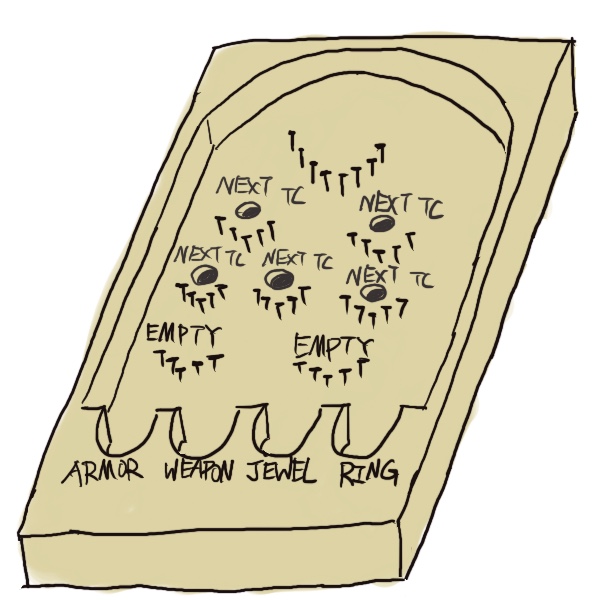 NEXT TC
NEXT TC
NEXT TC
NEXT TC
NEXT TC
EMPTY
EMPTY
ARMOR WEAPON JEWEL RING